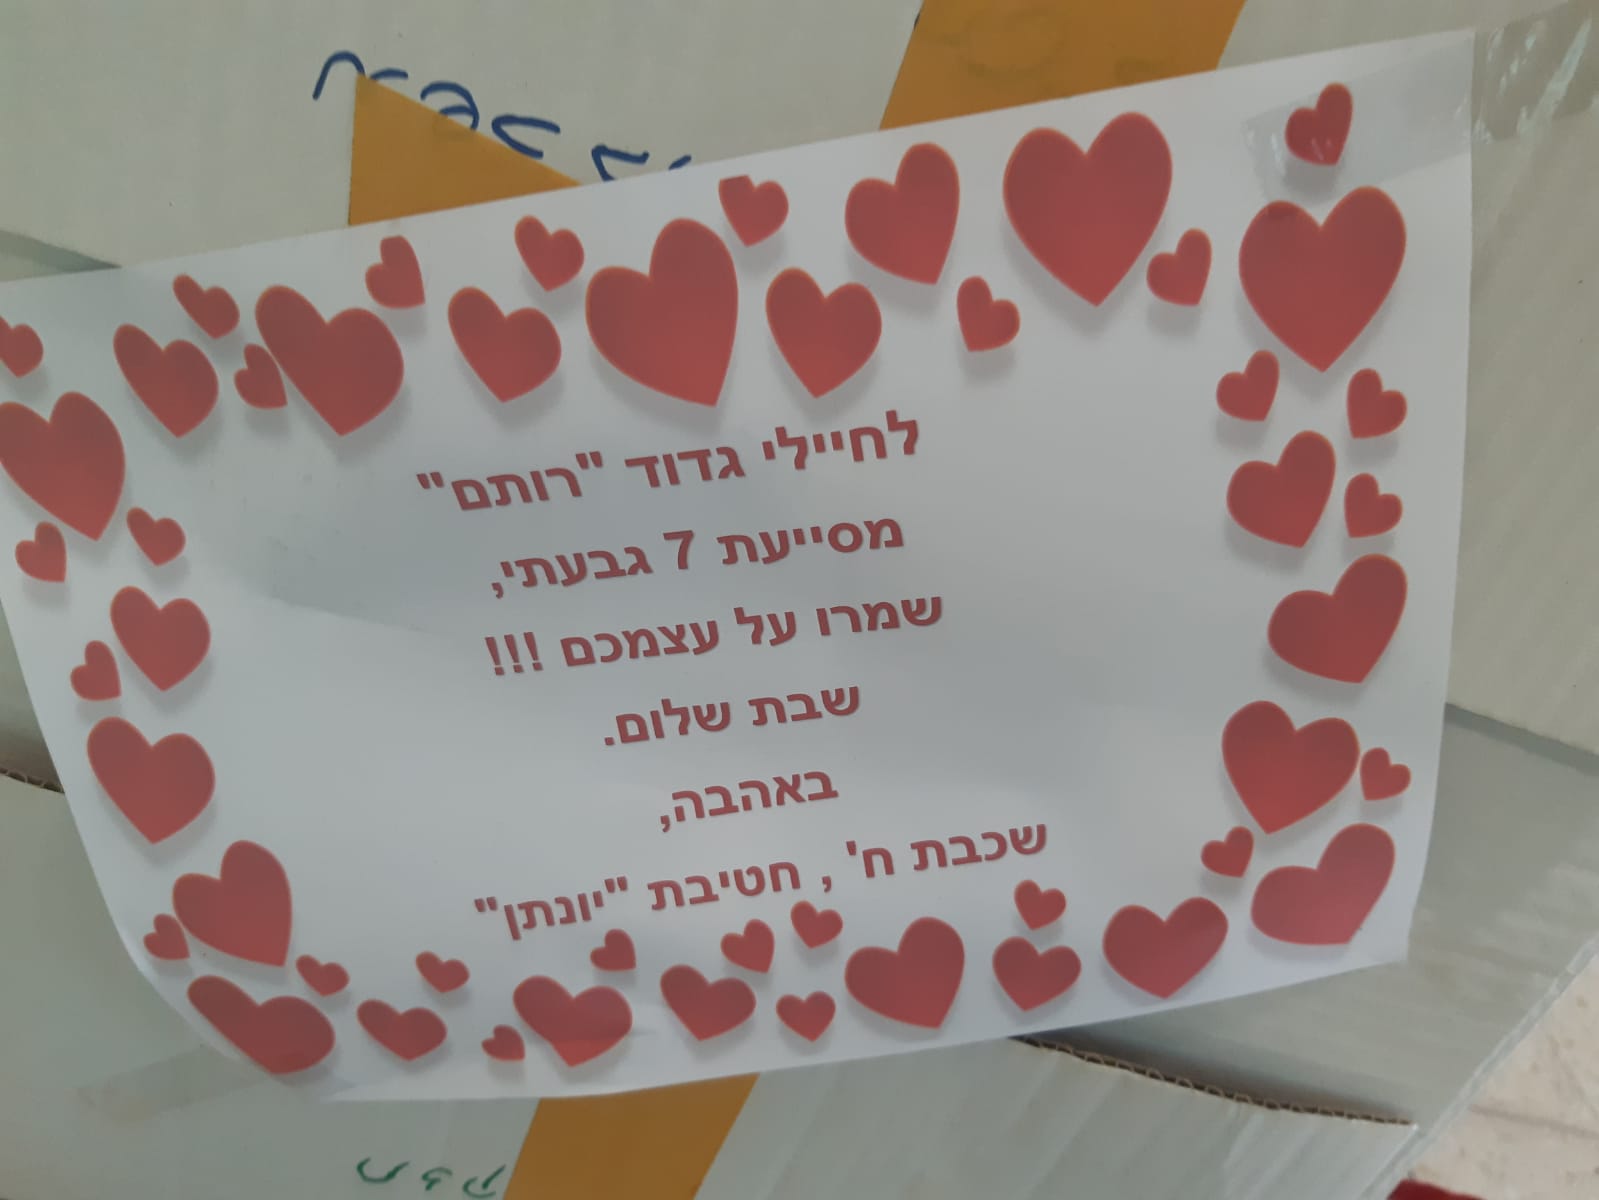 לחיילי גדוד "רותם"
מסייעת 7 גבעתי,
שמרו על עצמכם !!!
שבת שלום.
באהבה,
שכבת ח' , חטיבת "יונתן"